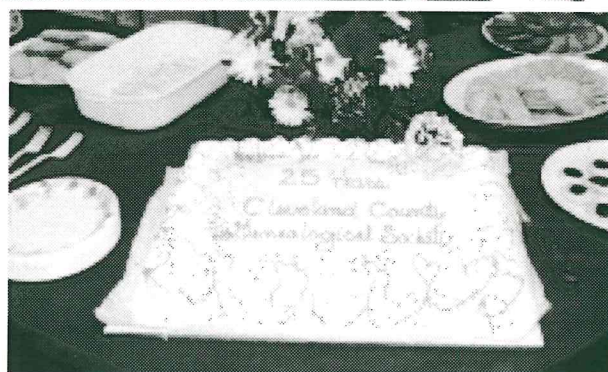 25 Years
Cleveland County
Genealogical Society